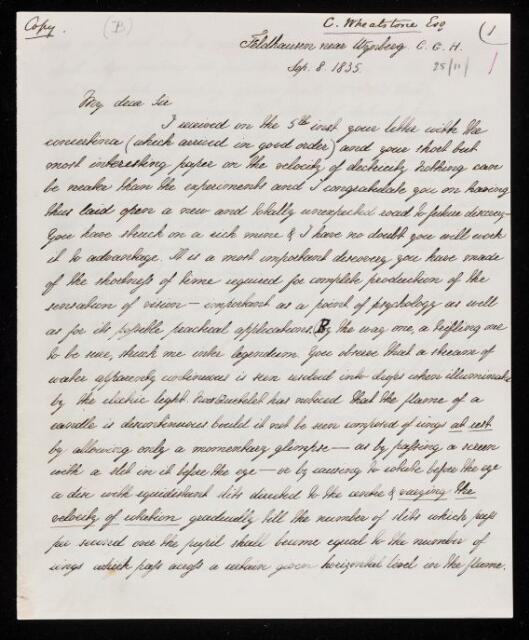 Copy.
(B)
C. Wheatstone Esq
(1
Feldhausen near Wynberg C. G. H.
Sep. 8. 1835.
25/11/
My dear Sir
I received on the 5th inst your letter with the
concertina (which arrived in good order) and your short but
most interesting paper on the velocity of electricity Nothing can
be neater than the experiments and I congratulate you on having
thus laid open a new and totally unexpected road to future discovery—
You have struck on a rich mine & I have no doubt you will work
it to advantage. It is a most important discovery you have made
of the shortness of time required for complete production of the
sensation of vision — important as a point of psychology as well
as for its possible practical applications. By the way one, a trifling one
to be sure, struck me inter legendum. You observe that a stream of
water apparently continuous is seen resolved into drops when illuminated
by the electric light. Quetelet has noticed that the flame of a
candle is discontinuous could it not be seen composed of rings at rest
by allowing only a momentary glimpse — as by passing a screen
with a slit in it before the eye — or by causing to rotate before the eye
a disc with equidistant slits directed to the centre & varying the
velocity of rotation gradually till the number of slits which pass
per second over the pupil shall become equal to the number of
rings which pass across a certain given horizontal level in the flame.